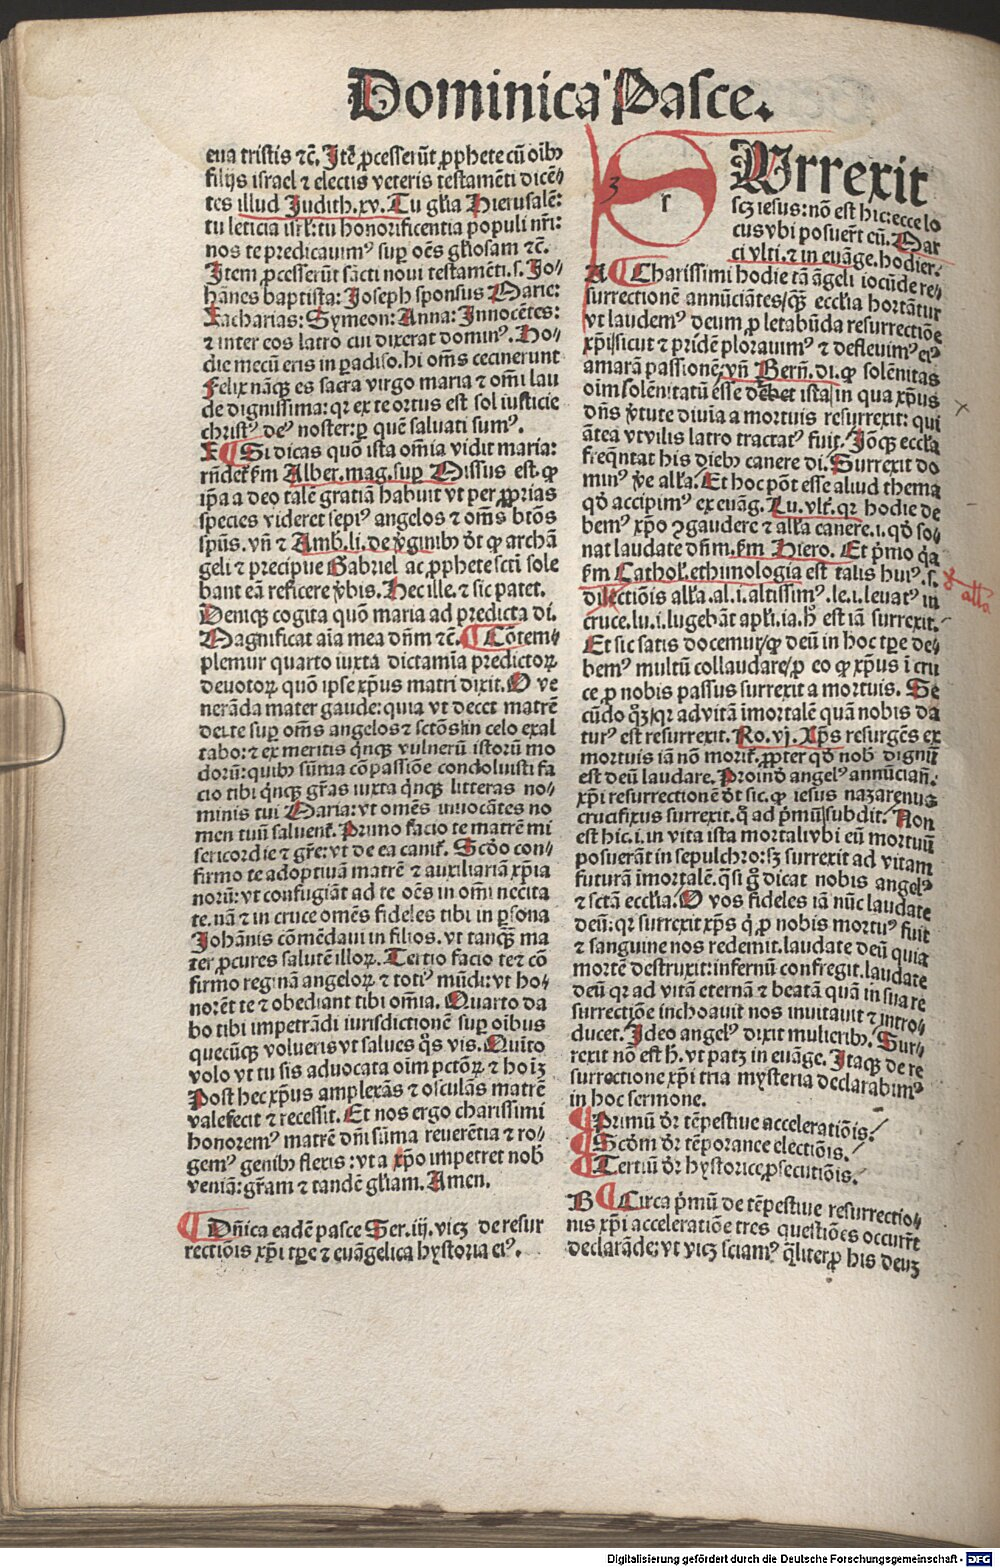 Dominica Pasce.
eua tristis ⁊c̄. Itē ꝓcesserūt ꝓphete cū oīb
filijs israel ⁊ electis veteris testamēti dicē-
tes illud Judith.xv. Tu gl̄ia Hierusalē:
tu leticia isrl̄: tu honorificentia populi nr̄i:
nos te predicauimꝰ suꝑ oēs gl̄iosam ⁊c̄.
Item ꝓcesserūt sācti noui testamēti.s. Jo-
hānes baptista: Joseph sponsus Marie:
Zacharias: Symeon: Anna: Innocētes:
⁊ inter eos latro cui dixerat dominꝰ. Ho-
die mecū eris in ꝑadiso. hi om̄s cecinerunt
Felix nāqꝫ es sacra virgo maria ⁊ om̄i lau
de dignissima: qꝛ ex te ortus est sol iusticie
christꝰ deꝰ noster: ꝑ quē saluati sumꝰ.
Si dicas quō ista om̄ia vidit maria:
rn̄det᷑ ẜm Alber.mag. suꝑ Missus est. ꝙ
ip̄a a deo talē gratiā habuit vt per ꝓprias
species videret sepiꝰ angelos ⁊ om̄s btōs
spūs. vn̄ ⁊ Amb. li. de v̓ginib d̄t ꝙ archā
geli ⁊ precipue Gabriel ac ꝓphete sctī sole
bant eā reficere v̓bis. Hec ille. ⁊ sic patet.
Denique cogita quō maria ad predicta di.
Magnificat aīa mea dn̄m ⁊c̄. Cōtem-
plemur quarto iuxta dictamīa predictoꝝ
deuotoꝝ quō ipse xp̄us matri dixit. O ve
nerāda mater gaude: quia vt decet matrē
dei te suꝑ om̄s angelos ⁊ sctōs in celo exal
tabo: ⁊ ex meritis qn̄qꝫ vulnerū istorū mo
dorū: quib sūma cōpassiōe condoluisti fa
cio tibi qn̄qꝫ gr̄as iuxta qn̄qꝫ litteras no-
minis tui Maria: vt omēs inuocātes no
men tuū saluent᷑. Primo facio te matrē mi
sericordie ⁊ gr̄e: vt de ea canit᷑. Scd̄o con-
firmo te adoptiuā matrē ⁊ auxiliariā xp̄ia
norū: vt confugiāt ad te oēs in om̄i necita
te. nā ⁊ in cruce omēs fideles tibi in ꝑsona
Johānis cōmēdaui in filios. vt tanqꝫ̄ ma
ter ꝓcures salutē illoꝝ. Tertio facio te ⁊ cō
firmo reginā angeloꝝ ⁊ totiꝰ mūdi: vt ho-
norēt te ⁊ obediant tibi om̄ia. Quarto da
bo tibi impetrādi iurisdictionē suꝑ oībus
quecūqꝫ volueris vt salues q̄s vis. Quīto
volo vt tu sis aduocata oīm pctōꝝ ⁊ hoīꝫ
Post hec xp̄us amplexās ⁊ osculās matrē
valefecit ⁊ recessit. Et nos ergo charissimi
honoremꝰ matrē dn̄i sūma reuerētia ⁊ ro-
gemꝰ genib flexis: vt a xp̄o impetret nob̄
veniā: gr̄am ⁊ tandē gl̄iam. Amen.
Dn̄ica eadē pasce Ser.iij. vicꝫ de resur
rectiōis xp̄i tꝑe ⁊ euāgelica hystoria eiꝰ.
SUrrexit
3
r
scꝫ iesus: nō est hic: ecce lo
cus vbi posuer̄t eū. Mar
ci vlti. ⁊ in euāge. hodier.
A Charissimi hodie tā āgeli iocūde re-
surrectionē annūciātes/qꝫ̄ eccl̄ia hortātur
vt laudemꝰ deum ꝓ letabūda resurrectiōe
xp̄i/sicut ⁊ pridē plorauimꝰ ⁊ defleuimꝰ eiꝰ
amarā passionē: vn̄ Bern̄. di. ꝙ solēnitas
oīm solēnitatū esse debet ista/in qua xp̄us
dn̄s v̓tute diuīa a mortuis resurrexit: qui
āntea vt vilis latro tractatꝰ fuit. Iōqꝫ eccl̄ia
freq̄ntat his dieb canere di. Surrexit do
minꝰ v̓e all̄a. Et hoc pōt esse aliud thema
qd̄ accipimꝰ ex euāg. Lu. vlt᷑. qꝛ hodie de
bemꝰ xp̄o ꝯgaudere ⁊ all̄a canere. i. qd̄ so-
nat laudate dn̄m. ẜm Hiero. Et p̓mo q̓a
ẜm Cathol̄. ethimologia est talis huiꝰ. s.
dilectiōis all̄a. al. i. altissimꝰ. le. i. leuatꝰ in
cruce. lu. i. lugebāt apl̄i. ia. h̄ est iā surrexit.
Et sic satis docemur/ꝙ deū in hoc tꝑe de-
bemꝰ multū collaudare/ꝓ eo ꝙ xp̄us ī cru
ce ꝓ nobis passus surrexit a mortuis. Se
cūdo q̓ꝫ/qꝛ ad vitā īmortalē quā nobis da
turꝰ est resurrexit. Ro. vj. Xp̄s resurgēs ex
mortuis iā nō morit᷑. ꝓpter qd̄ nob̄ dignū
est deū laudare. Proinde angelꝰ annūciās
xp̄i resurrectionē d̄t sic. ꝙ iesus nazarenus
crucifixus surrexit. q̓ ad p̓mū/subdit. Non
est hic. i. in vita ista mortali vbi eū mortuū
posuerāt in sepulchro: sꝫ surrexit ad vitam
futurā īmortalē. q̄si g̊ dicat nobis angelꝰ
⁊ sctā eccl̄ia. O vos fideles iā nūc laudate
deū: qꝛ surrexit xp̄s q̓ ꝓ nobis mortuꝰ fuit
⁊ sanguine nos redemit. laudate deū quia
mortē destruxit: infernū confregit. laudate
deū qꝛ ad vitā eternā ⁊ beatā quā in sua re
surrectiōe inchoauit nos inuitauit ⁊ intro-
ducet. Ideo angelꝰ dixit mulierib. Sur-
rexit nō est h̄. vt patꝫ in euāge. Itaqꝫ de re
surrectione xp̄i tria mysteria declarabimꝰ
in hoc sermone.
Primū dr̄ tēpestiue acceleratiōis.
Scdm̄ dr̄ tēporance electiōis.
Tertiū dr̄ hystorice ꝓsecutiōis.
B Circa p̓mū de tēpestiue resurrectio-
nis xp̄i acceleratiōe tres questiōes occurr̄t
declarāde: vt vicꝫ sciamꝰ q̄liter ꝓ his deuꝫ
all̄a
Digitalisierung gefördert durch die Deutsche Forschungsgemeinschaft - DFG